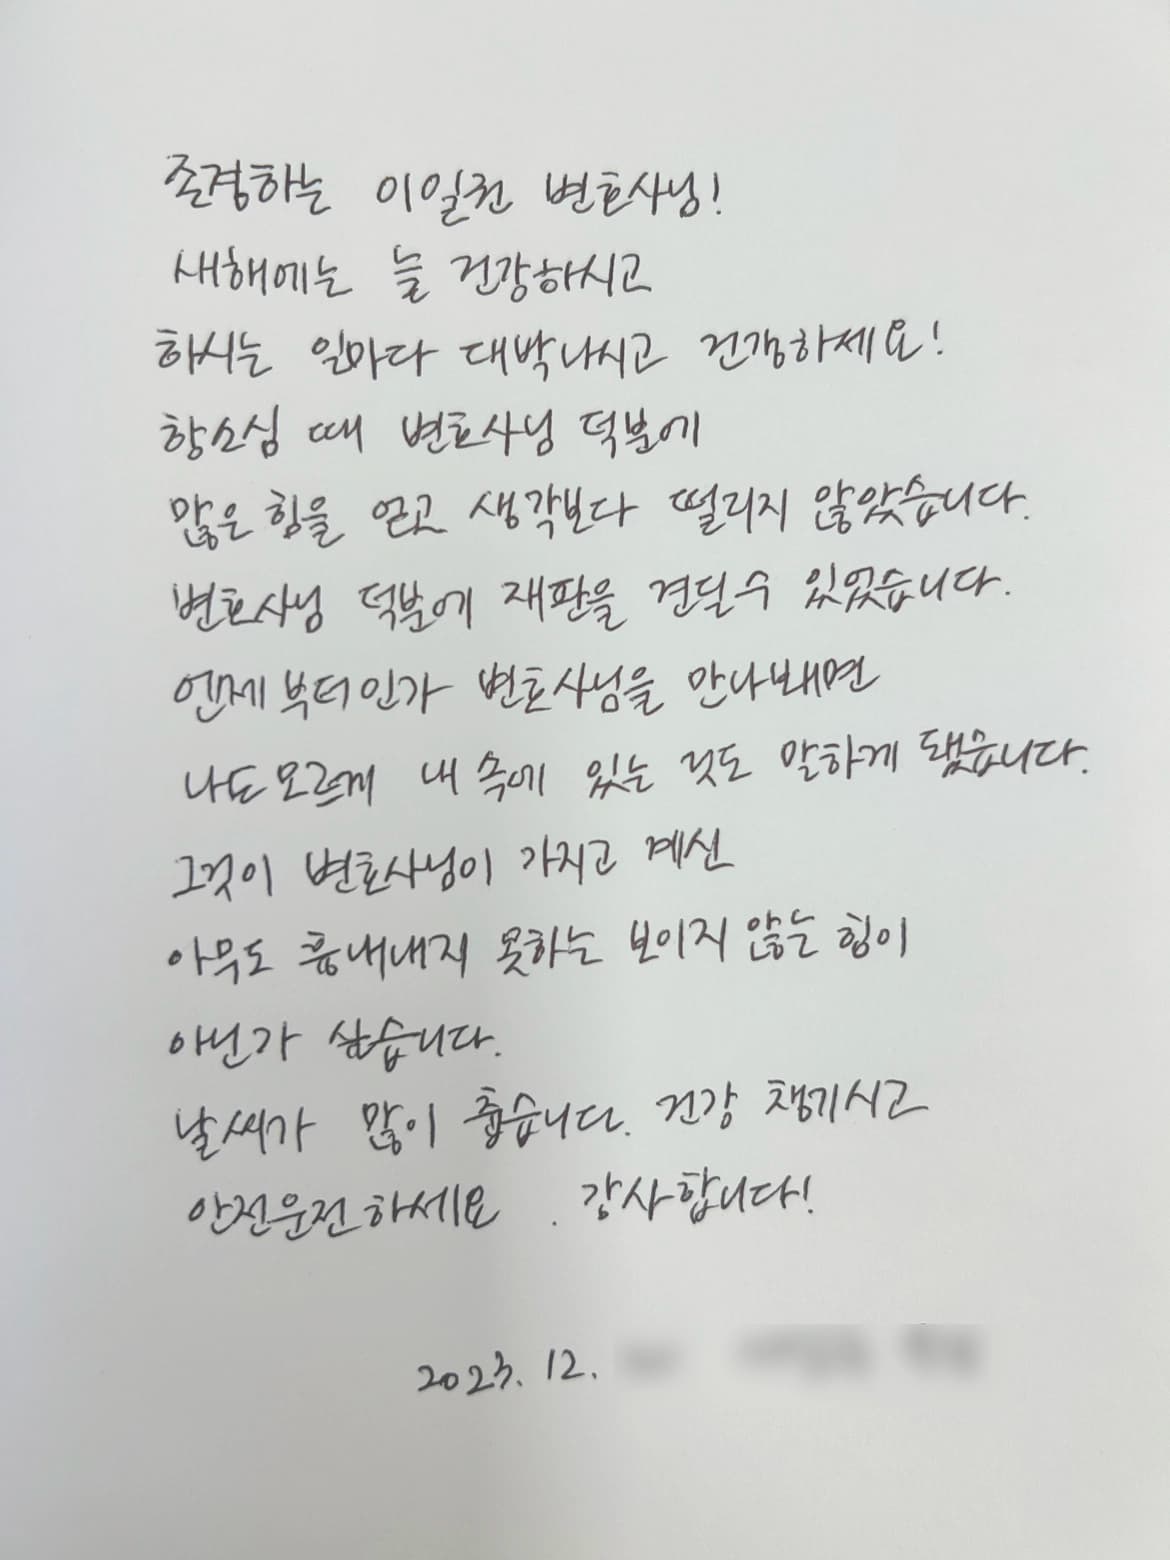 존경하는 이일권 변호사님!
새해에는 늘 건강하시고
하시는 일마다 대박나시고 건강하세요!
항소심 때 변호사님 덕분에
많은 힘을 얻고 생각보다 떨리지 않았습니다.
변호사님 덕분에 재판을 견딜수 있었습니다.
언제부터인가 변호사님을 만나뵈면
나도 모르게 내 속에 있는 것도 말하게 됐습니다.
그것이 변호사님이 가지고 계신
아무도 흉내내지 못하는 보이지 않는 힘이
아닌가 싶습니다.
날씨가 많이 춥습니다. 건강 챙기시고
안전운전하세요. 감사합니다!
2023. 12.